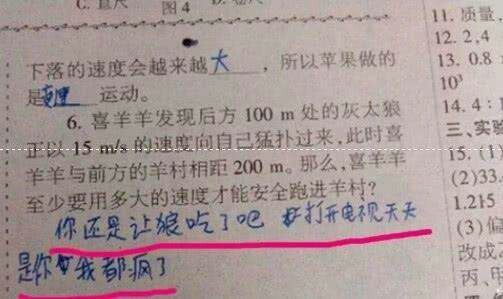 C. 直尺
图4
下落的速度会越来越大,所以苹果做的
是变速运动。
6. 喜羊羊发现后方 100 m 处的灰太狼
正以 15 m/s 的速度向自己猛扑过来,此时喜
羊羊与前方的羊村相距 200 m。那么,喜羊羊
至少要用多大的速度才能安全跑进羊村?
你还是让狼吃了吧 打开电视天天
是你 我都疯了
11. 质量
12. 2,4
13. 0.8
10³
14. 4:
三、实验
15. (1)
(2)33.
1.215
(3)偏
改成
丙、甲
四、